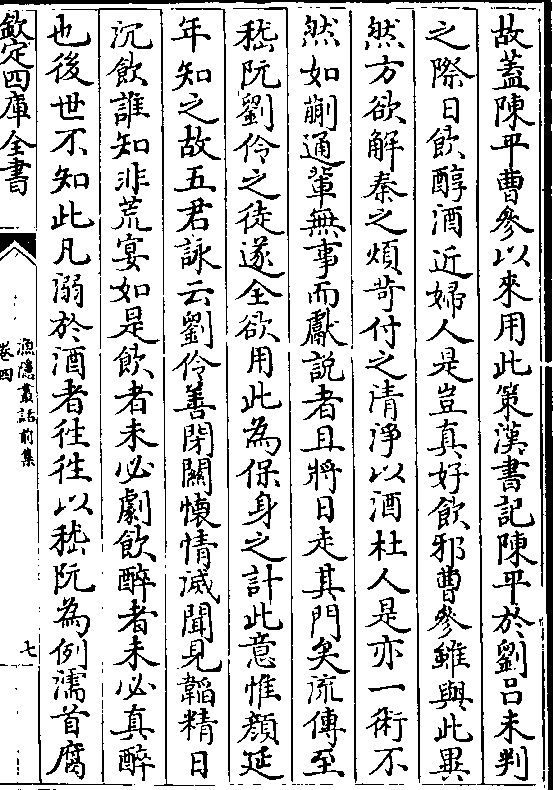 故蓋陳平曹參以來用此策漢書記陳平於劉吕未判
之際日飲醇酒近婦人是豈真好飲邪曹參雖與此異
然方欲解秦之煩苛付之清淨以酒杜人是亦一術不
然如蒯通輩無事而獻説者且將日走其門矣流傳至
嵇阮劉伶之徒遂全欲用此為保身之計此意惟顔延
年知之故五君詠云劉伶善閉關懷情滅聞見韜精日
沉飲誰知非荒宴如是飲者未必劇飲醉者未必真醉
也後世不知此凡溺於酒者往往以嵇阮為例濡首腐
欽定四庫全書
漁隱叢話前集
卷四
七